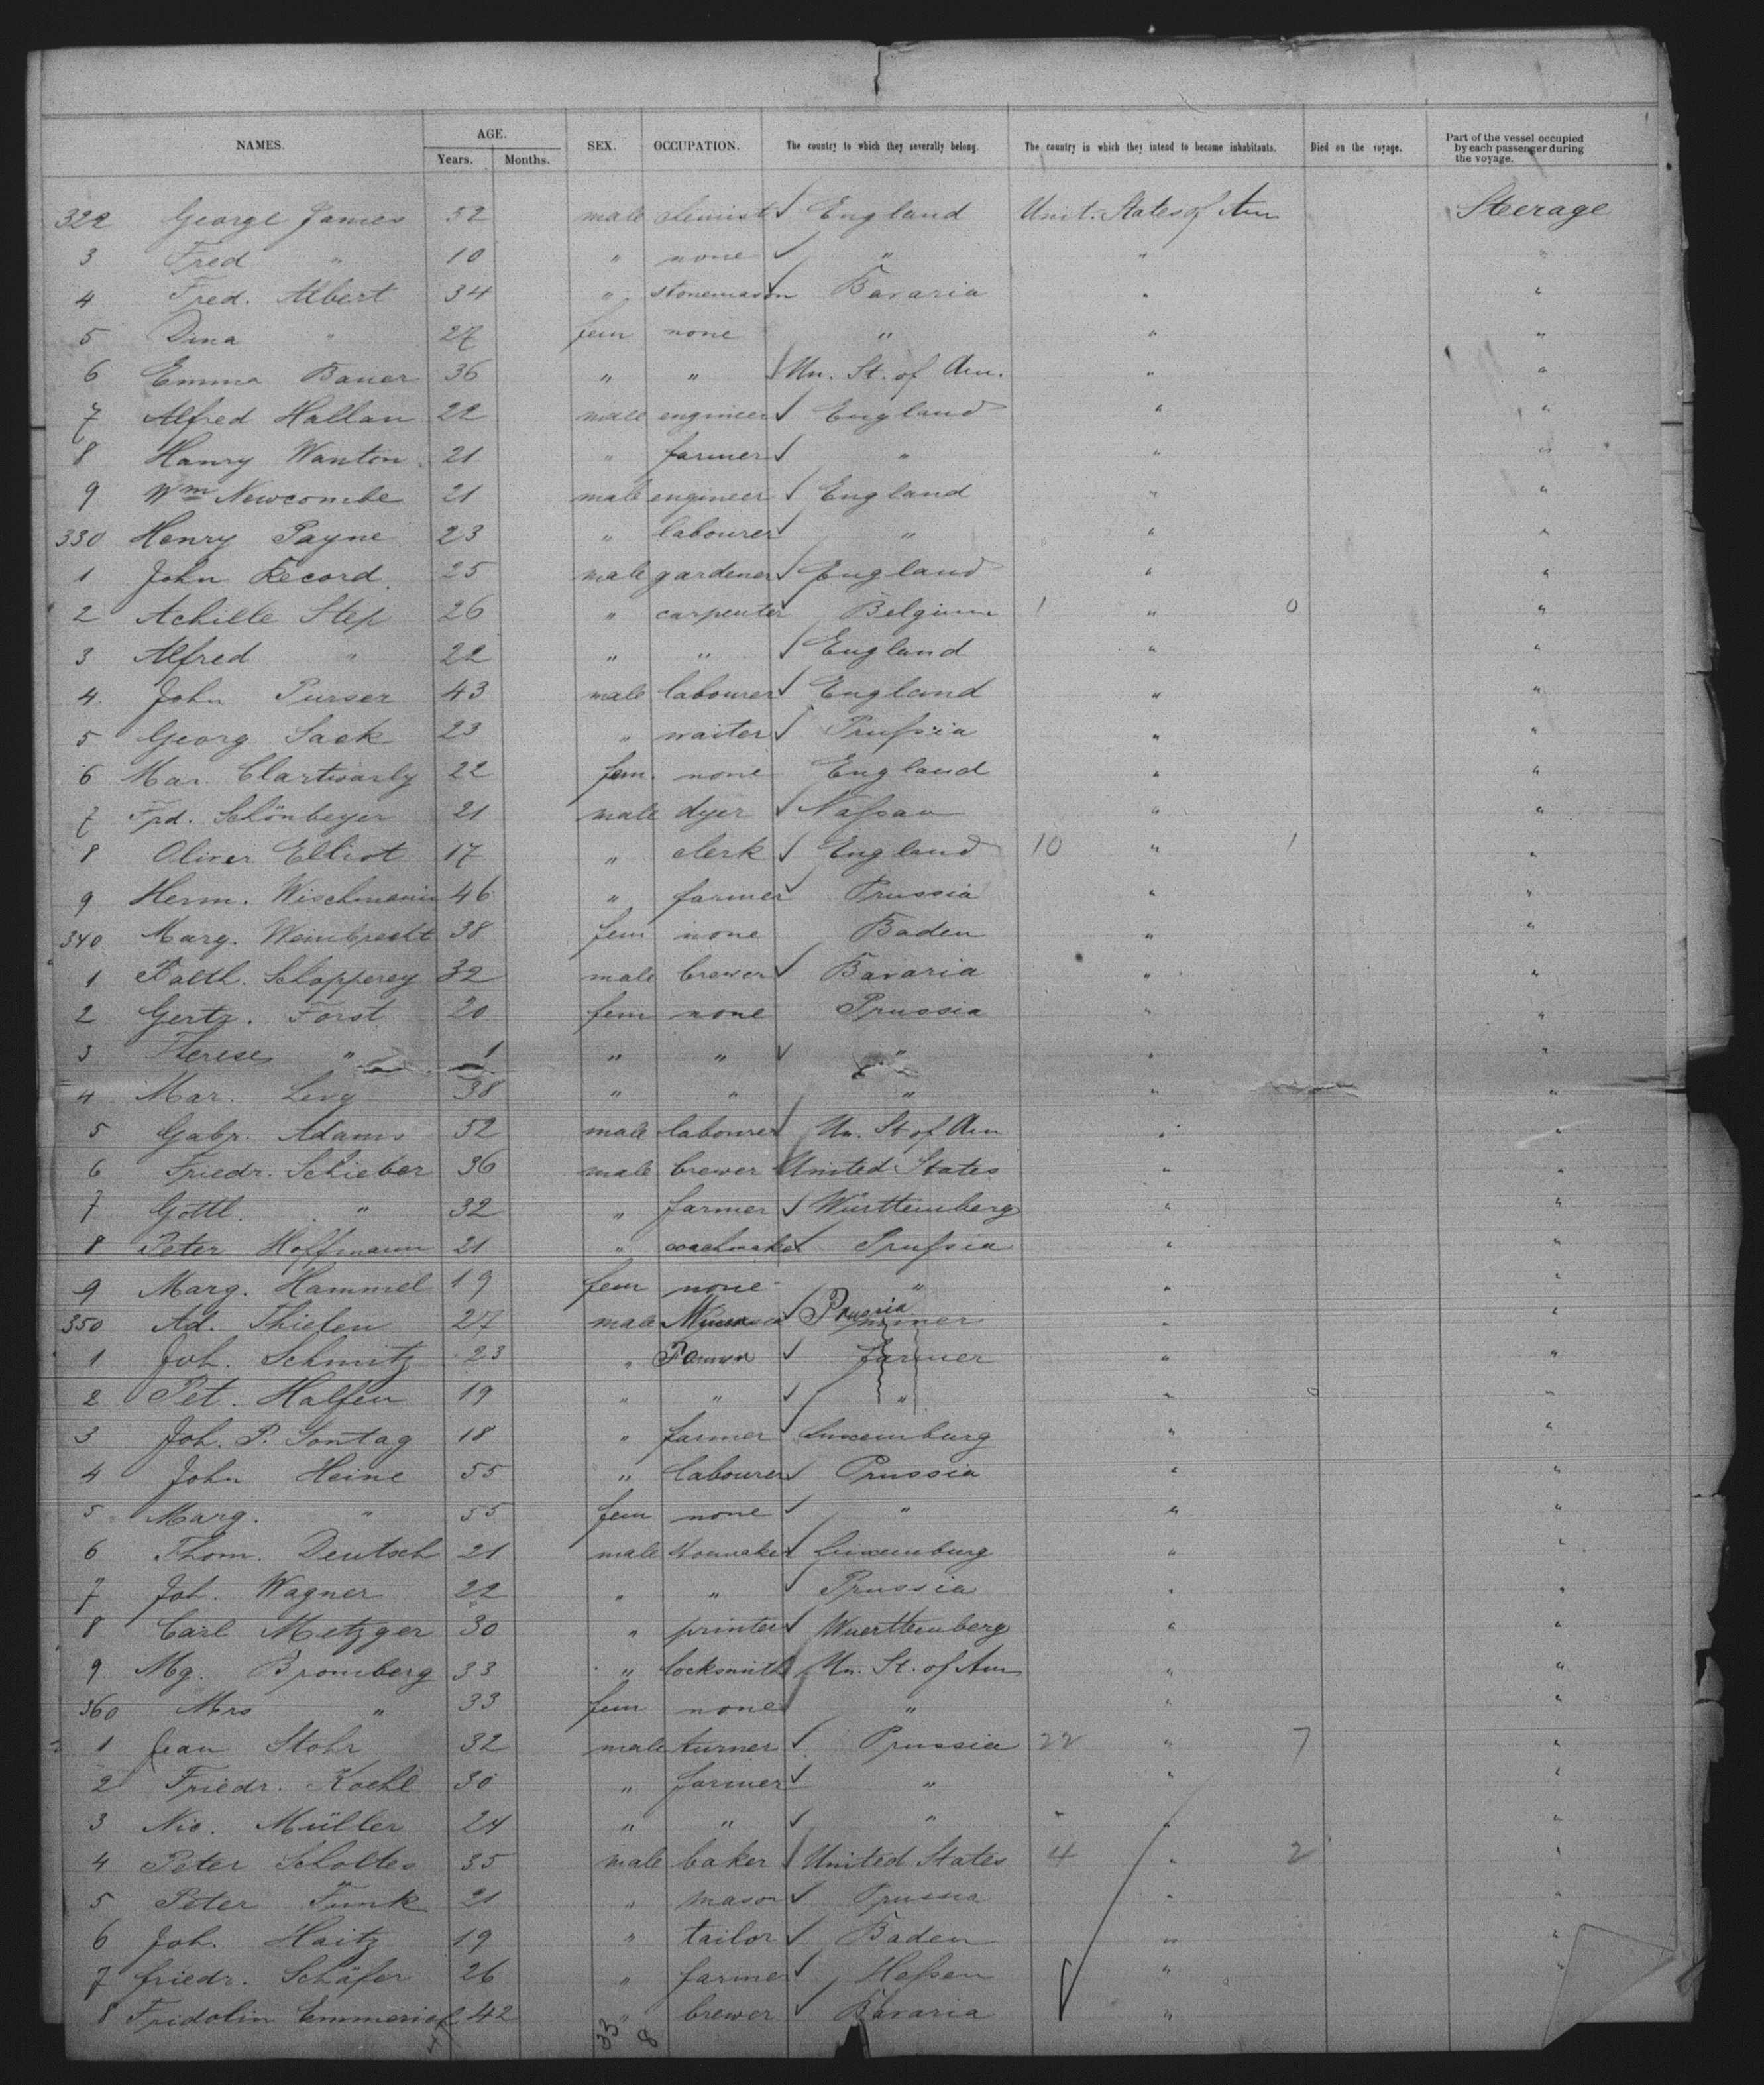 NAMES. AGE. SEX. OCCUPATION. The country to which they severally belong. The country in which they intend to become inhabitants. Died on the voyage. Part of the vessel occupied by each passenger during the voyage.
Years. Months.
322 George James 52 male chemist ✓ England Unit. States of Am Steerage
3 Fred " 10 " none ✓ " " "
4 Fred. Albert 34 " stonemason ✓ Bavaria " "
5 Dina " 27 fem none " " "
6 Emma Bauer 36 " " ✓ Un. St. of Am. " "
7 Alfred Hallan 22 male engineer ✓ England " "
8 Hanry Wanton 21 " farmer ✓ " " "
9 Wm Newcombe 21 male engineer ✓ England " "
330 Henry Payne 23 " labourer ✓ " " "
1 John Record 25 male gardener ✓ England " "
2 Achille Step 26 " carpenter ✓ Belgium 1 " 0 "
3 Alfred " 22 " " ✓ England " "
4 John Purser 43 male labourer ✓ England " "
5 Georg Sack 23 " waiter ✓ Prußia " "
6 Mar. 22 fem. none England " "
7 Frd. Schönbeyer 21 male dyer ✓ Naßau " "
8 Oliver Elliot 17 " clerk ✓ England 10 " 1 "
9 Herm. Wischmann 46 " farmer ✓ Prussia " "
340 Marg. Weinbrecht 38 fem none Baden " "
1 Balth. Schopperey 32 male brewer ✓ Bavaria " "
2 Gertr. Forst 20 fem none Prussia " "
3 Therese " 1 " " ✓ " " "
4 Mar. Levy 38 " " " " "
5 Gabr. Adams 52 male labourer ✓ Un. St of Am " "
6 Friedr. Schieber 36 male brewer ✓ United States " "
7 Gottl. " 32 " farmer ✓ Württemberg " "
8 Peter Hoffmann 21 " coachmaker ✓ Prußia " "
9 Marg. Hammel 19 fem none " " "
350 Ad. Thielen 27 male ✓ Prussia miner " "
1 Joh. Schmitz 23 " Farmer ✓ farmer " "
2 Pet. Halfen 19 " " ✓ " " "
3 Joh. P. Sontag 18 " farmer ✓ Luxemburg " "
4 John Heine 55 " labourer ✓ Prussia " "
5 Marg. " 55 fem none ✓ " " "
6 Thom. Deutsch 21 male ✓ Luxemburg " "
7 Joh. Wagner 22 " " ✓ Prussia " "
8 Carl Metzger 30 " printer ✓ Wuerttemberg " "
9 Mg. Bromberg 33 " locksmith ✓ Un. St. of Am " "
360 Mrs " 33 fem none ✓ " " "
1 Jean Stohr 32 male turner ✓ Prussia 22 " 7 "
2 Friedr. Koehl 30 " farmer ✓ " " "
3 Nic. Müller 24 " " ✓ " " "
4 Peter Scholtes 35 male baker ✓ United States 4 " 2 "
5 Peter Funk 21 " mason ✓ Prussia " "
6 Joh. Haitz 19 " tailor ✓ Baden " "
7 Friedr. Schäfer 26 " farmer ✓ Heßen ✓ " "
8 Fridolin Emmerich 42 " brewer ✓ Bavaria "
33 8